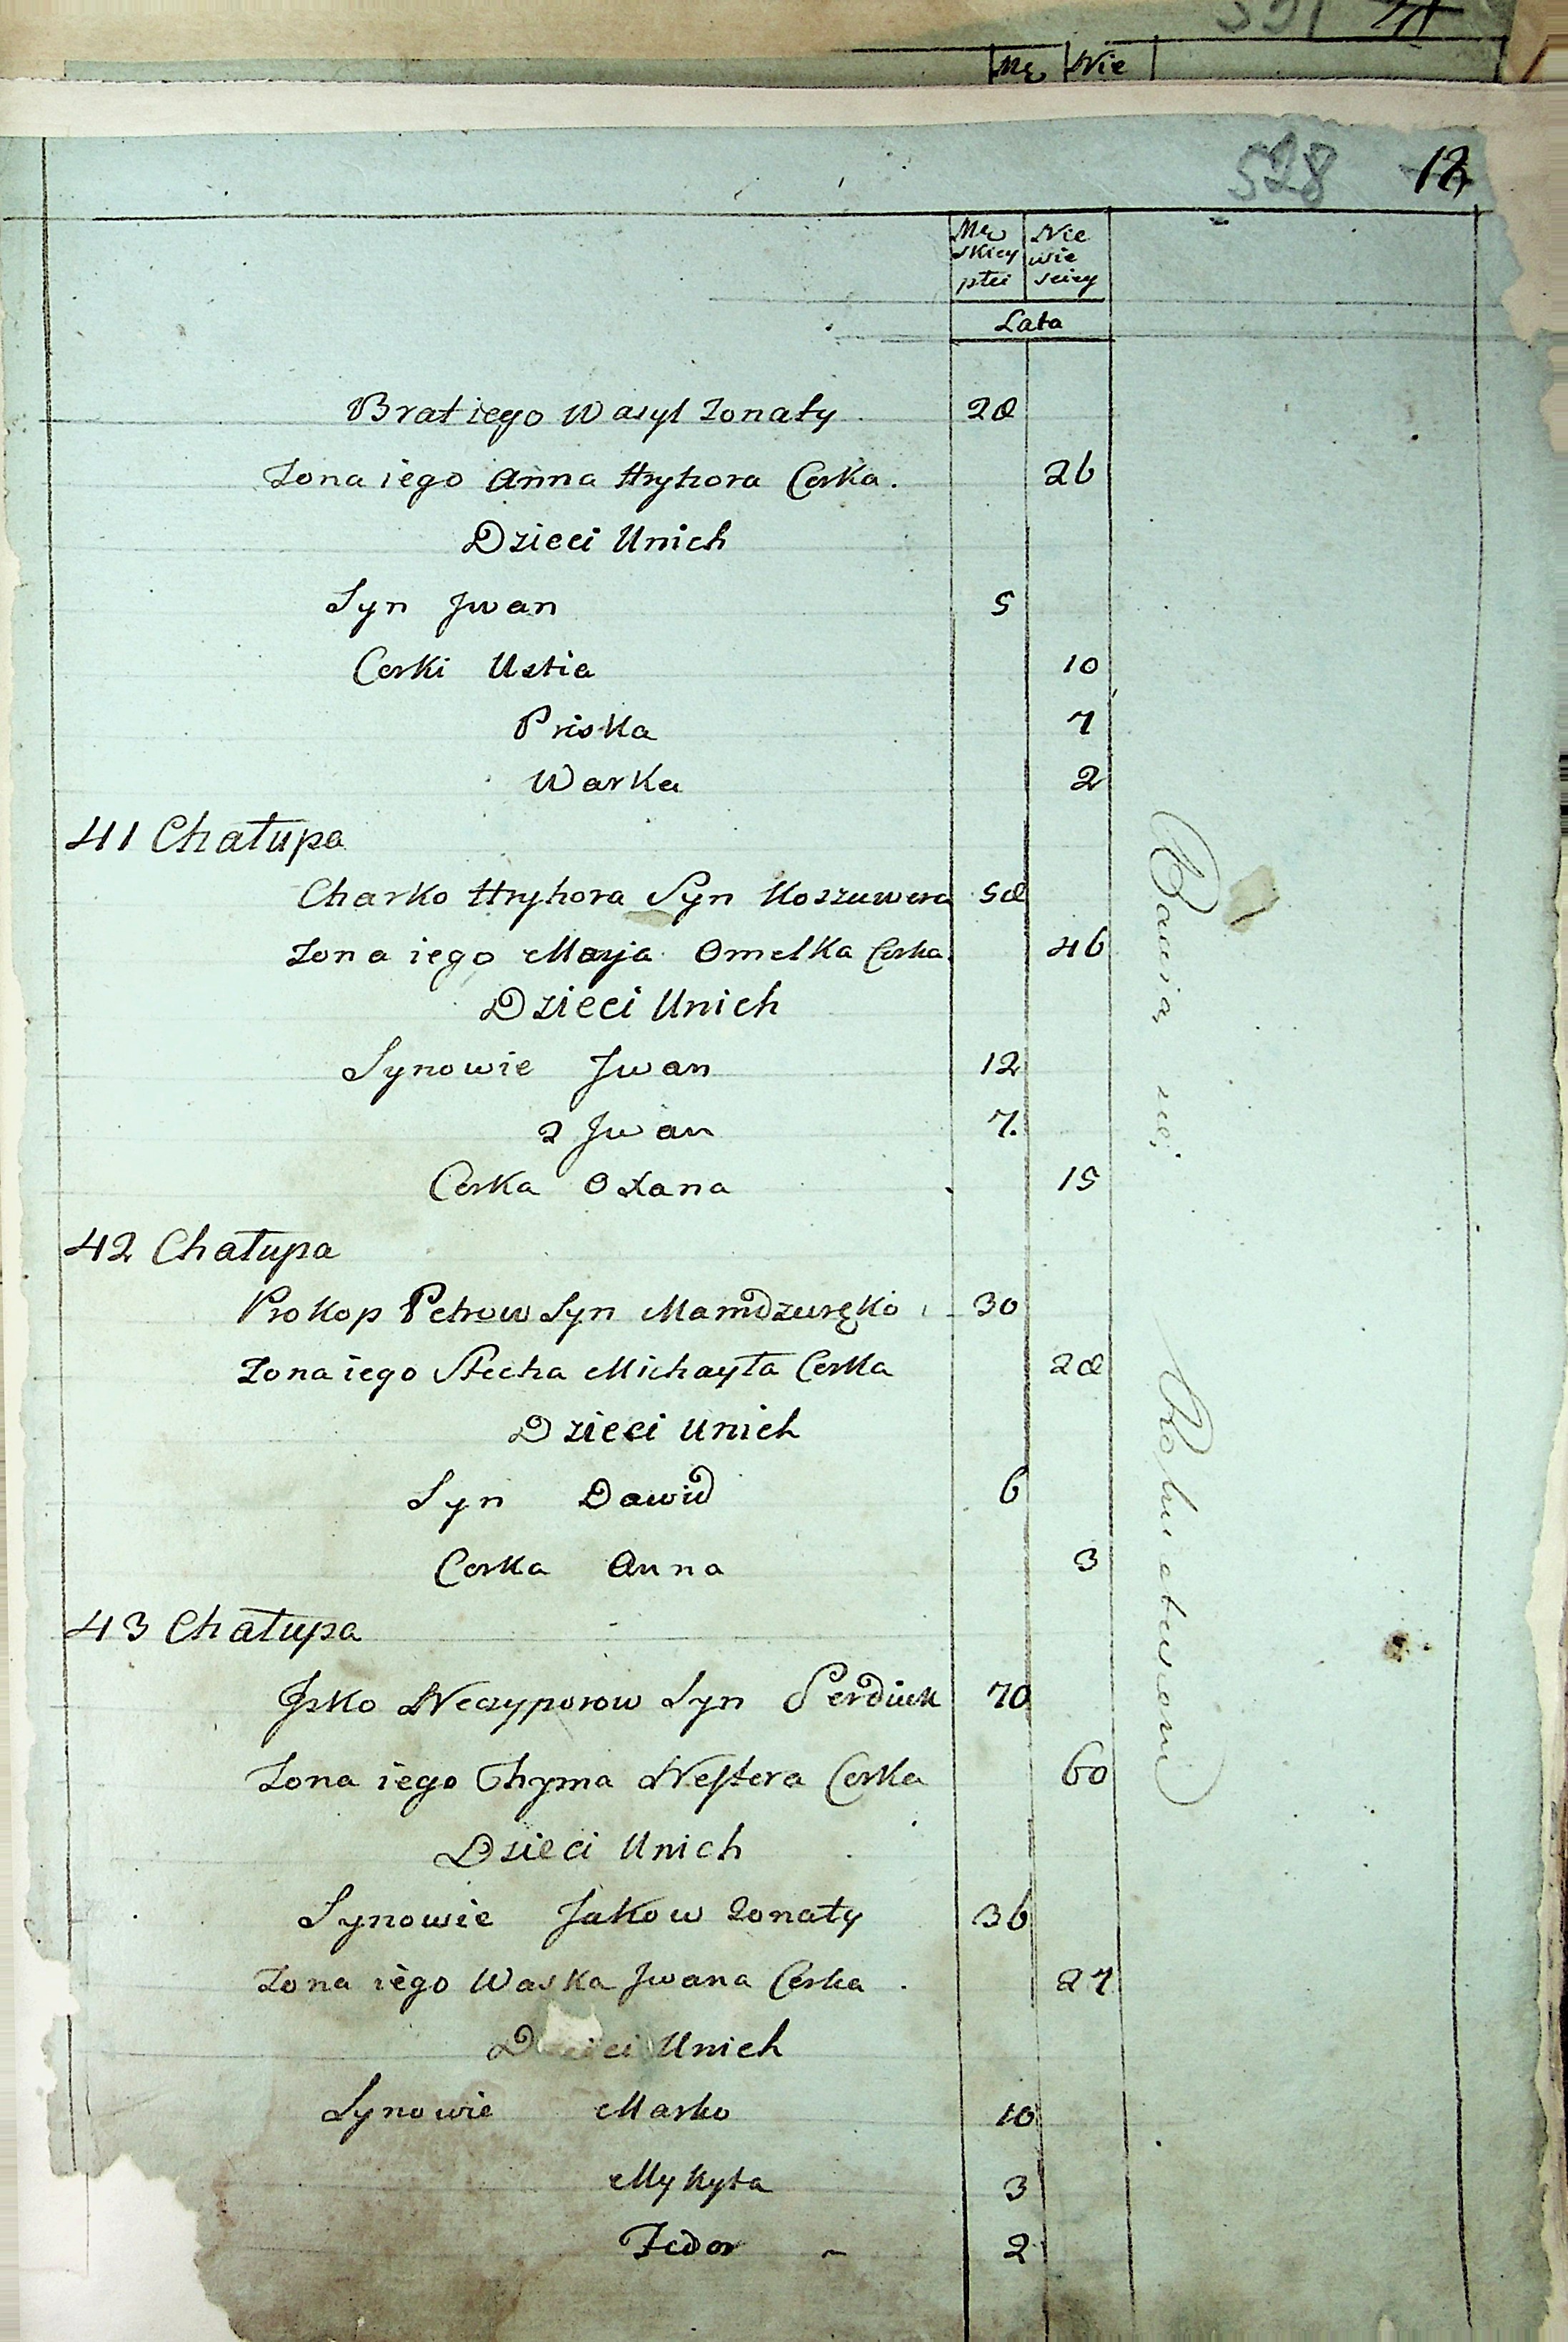 Mę Nie
528 12
Mę Nie
skiey wie
płci sciey
Lata
Brat iego Wasyl Zonaty 28
Zona iego Anna Hryhora Corka. 26
Dzieci Unich
Syn Jwan 5
Corki Ustia 10
Priska 7
Warka 2
41 Chałupa
Charko Hryhora Syn Koszuwera 58
Zona iego Marja Omelka Corka. 46
Dzieci Unich
Synowie Jwan 12
2 Jwan 7.
Corka Oxana 15
42 Chałupa
Prokop Petrow Syn Mamdzuręko 30
Zona iego Stecha Michayła Corka 28
Dzieci Unich
Syn Dawid 6
Corka Anna 3
43 Chałupa
Jsko Neczyporow Syn Serdiuk 70
Zona iego Chyma Nestera Corka 60
Dzieci Unich
Synowie Jakow Zonaty 36
Zona iego Waska Jwana Corka. 27
Dzieci Unich
Synowie Marko 10
Mykyta 3
Fedor 2
Bawią się
Rolnictwem